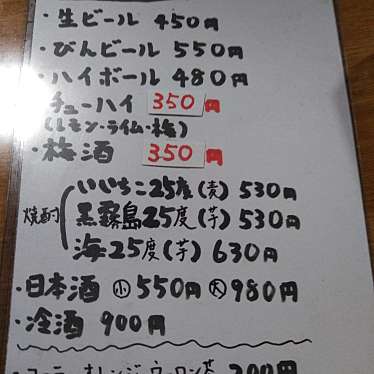 ・生ビール 450円
・びんビール 550円
・ハイボール 480円
・チューハイ 350円
(レモン・ライム・梅)
・梅酒 350円
焼酎
いいちこ25度(麦) 530円
黒霧島25度(芋) 530円
海25度(芋) 630円
・日本酒 小 550円 大 980円
・冷酒 900円
・コーラ オレンジ ウーロン茶 200円